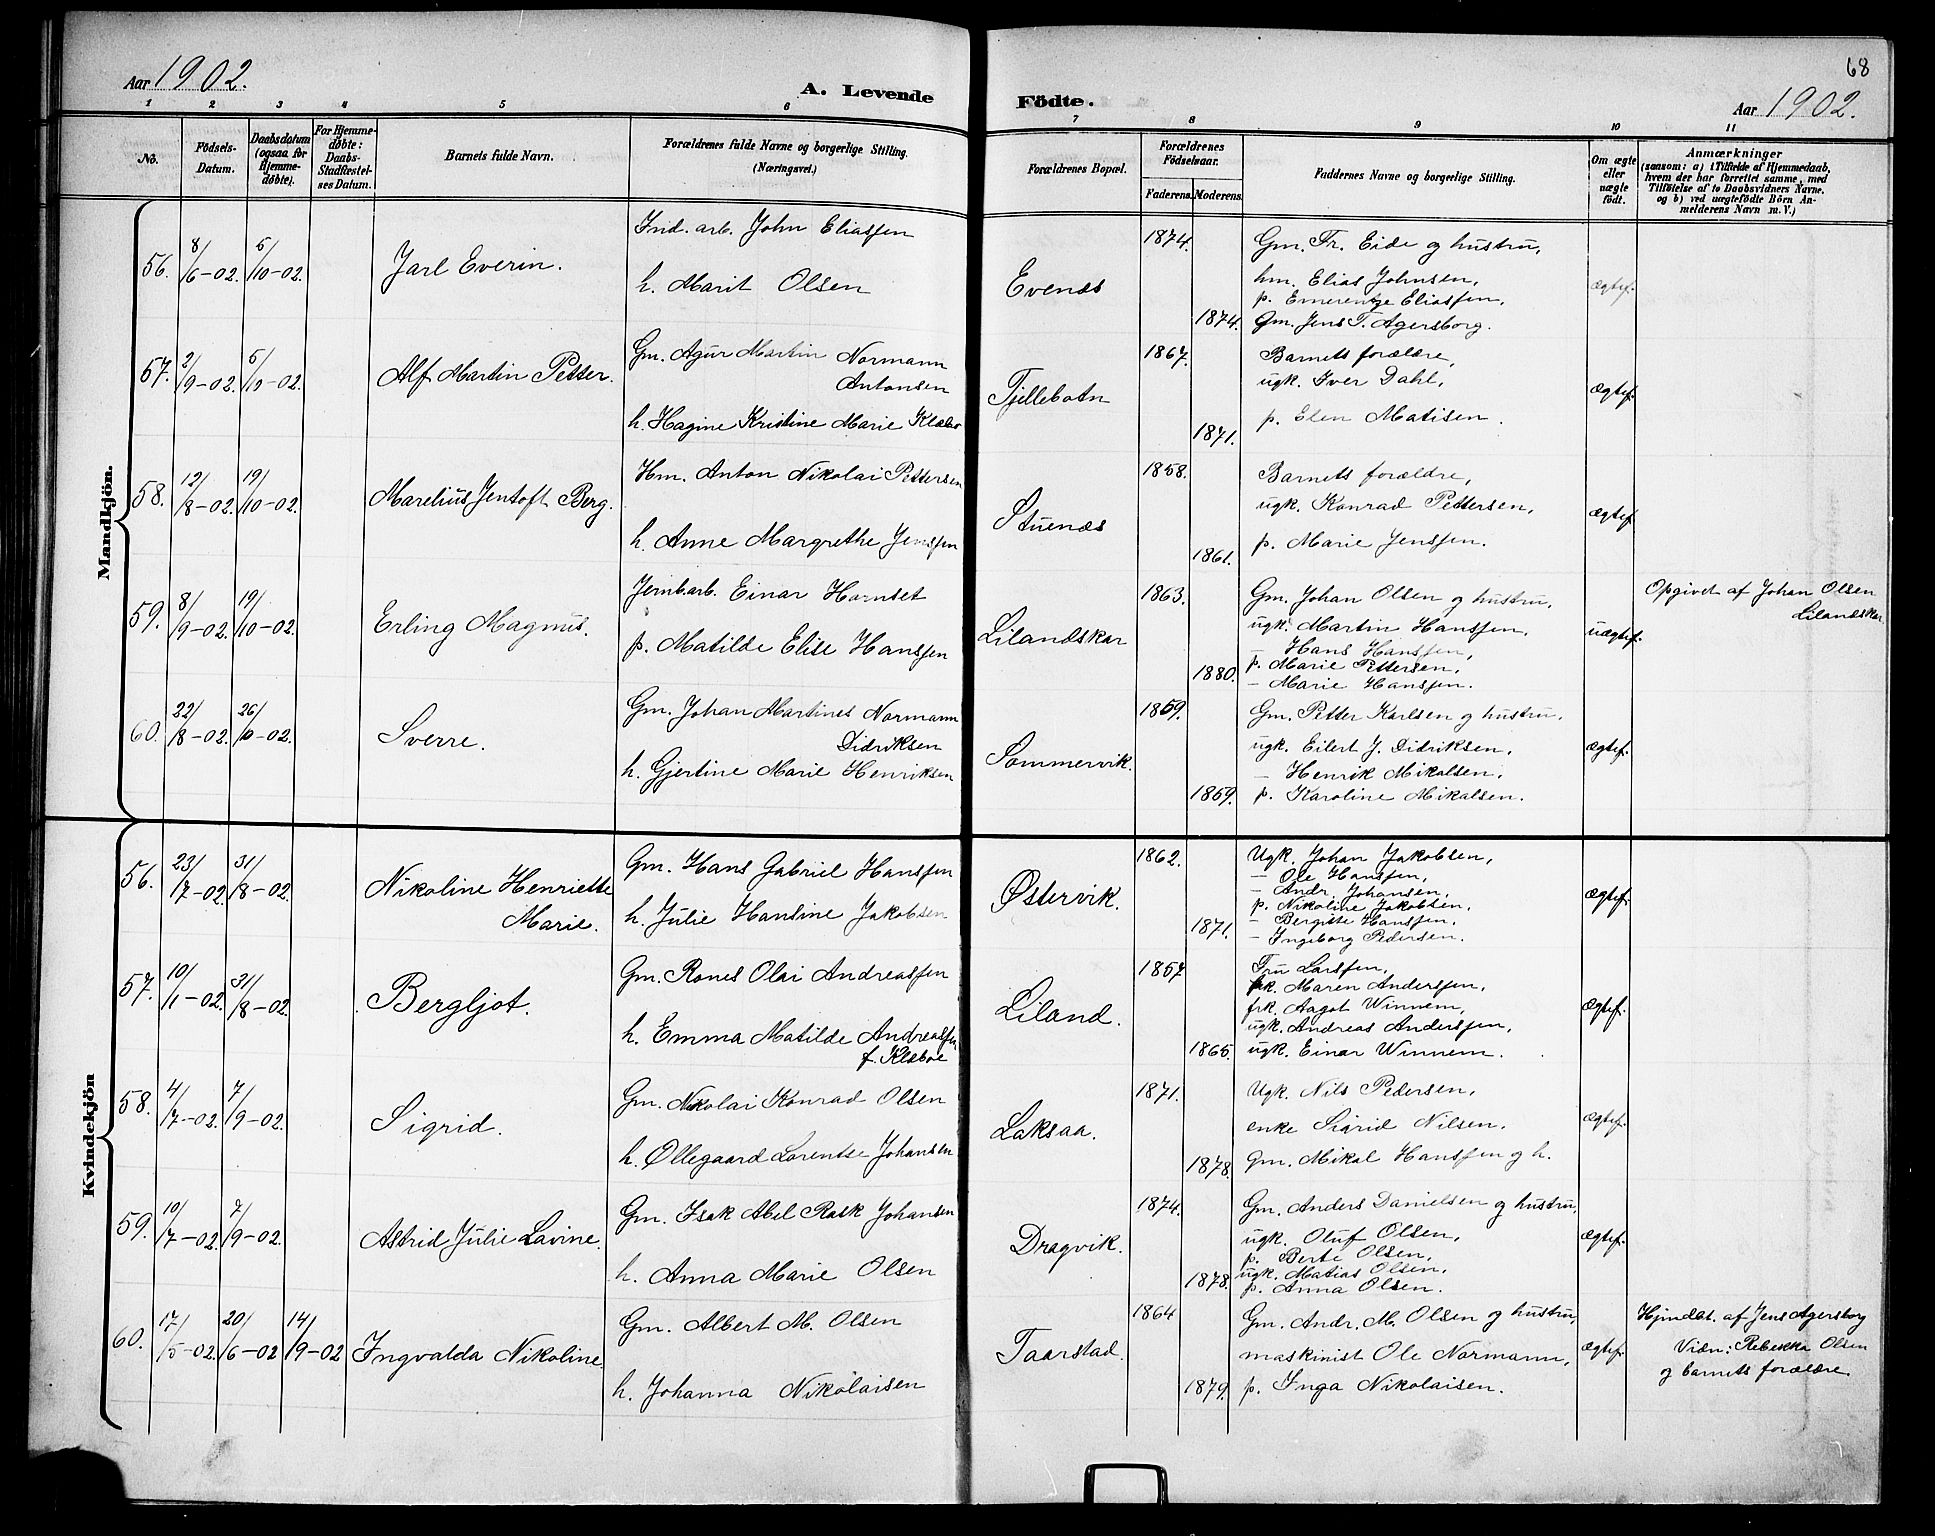 Aar 1902.
A. Levende
1 2 3 4 5 6
No.
Födsels-Datum.
Daabsdatum (ogsaa for Hjemme-døbte).
For Hjemme-døbte: Daabs-Stadfæstel-ses Datum.
Barnets fulde Navn.
Forældrenes fulde Navne og borgerlige Stilling.
(Næringsvei.)
Födte.
68
Aar 1902.
7 8 9 10 11
Forældrenes Bopæl.
Forældrenes Födselsaar.
Faderens. Moderens.
Faddernes Navne og borgerlige Stilling.
Om ægte eller uægte født.
Anmærkninger
(saasom: a) i Tilfælde af Hjemmedaab,
hvem der har forrettet samme, med
Tilføielse af to Daabsvidners Navne.
og b) ved uægtefødte Börn An-
melderens Navn m. V.)
Mandkjön.
56. 8/6-02. 5/10-02. Jarl Everin.
Ind. arb. John Eliassen
h. Marit Olsen
Evenes
1874.
1874.
Gm. Fr. Eide og hustru,
hm. Elias Johnsen,
p. Emerentze Eliassen,
Gm. Jens T. Agersborg.
ægtef.
57. 2/9-02. 5/10-02. Alf Martin Petter.
Gm. Agur Martin Normann
Antonsen
h. Hagine Kristine Marie Klæbo
Tjellebotn
1867.
1871.
Barnets forældre,
ugk. Iver Dahl,
p. Elen Matisen.
ægtef.
58. 12/8-02. 19/10-02. Marelius Jentoft Berg.
Hm. Anton Nikolai Pettersen
h. Anne Margrethe Jenssen
Stuenes
1858.
1861.
Barnets forældre,
ugk. Konrad Pettersen,
p. Marie Jenssen.
ægtef.
59. 8/9-02. 19/10-02. Erling Magnus.
Jernb.arb. Einar Hornset
p. Matilde Elise Hanssen
Lilandskar
1863.
1880.
Gm. Johan Olsen og hustru,
ugk. Martin Hanssen,
– Hans Hanssen,
p. Marie Pettersen,
– Marie Hanssen.
uægtef.
Opgivet af Johan Olsen
Lilandskar
60. 22/8-02. 26/10-02. Sverre.
Gm. Johan Martines Normann
Didriksen
h. Gjertine Marie Henriksen
Sommervik.
1859.
1859.
Gm. Petter Karlsen og hustru,
ugk. Eilert J. Didriksen,
– Henrik Mikalsen,
p. Karoline Mikalsen.
ægtef.
Kvindekjön
56. 23/7-02. 31/8-02. Nikoline Henriette
Marie.
Gm. Hans Gabriel Hanssen
h. Julie Hansine Jakobsen
Østervik.
1862.
1871.
Ugk. Johan Jakobsen,
– Ole Hanssen,
– Andr. Johansen,
p. Nikoline Jakobsen,
– Bergitte Hanssen,
– Ingeborg Pedersen.
ægtef.
57. 10/1-02. 31/8-02. Bergljot.
Gm. Rones Olai Andreassen
h. Emma Matilde Andreassen
f. Klæboe
Liland.
1857
1865.
Fru Larssen,
frk. Maren Anderssen,
frk. Aagot Winnem,
ugk. Andreas Anderssen,
ugk. Einar Winnem.
ægtef.
58. 4/7-02. 7/9-02. Sigrid.
Gm. Nikolai Konrad Olsen
h. Øllegaard Lorentse Johansen
Laksaa.
1871.
1878.
Ugk. Nils Pedersen,
enke Sigrid Nilsen.
Gm. Mikal Hanssen og h.
ægtef.
59. 10/7-02. 7/9-02. Astrid Julie Lavine.
Gm. Isak Abel Rask Johansen
h. Anna Marie Olsen
Dragvik.
1874.
1878.
Gm. Anders Danielsen og hustru,
ugk. Oluf Olsen,
p. Berte Olsen,
ugk. Matias Olsen.
p. Anna Olsen.
ægtef.
60. 17/5-02. 20/6-02 14/9-02 Ingvalda Nikoline
Gm. Albert M. Olsen
h. Johanna Nikolaisen
Taarstad.
1864
1879.
Gm. Andr. M. Olsen og hustru,
maskinist Ole Normann,
p. Inga Nikolaisen.
ægtef.
Hjmdøbt. af Jens Agersborg
Vidn: Rebekka Olsen
og barnets forældre